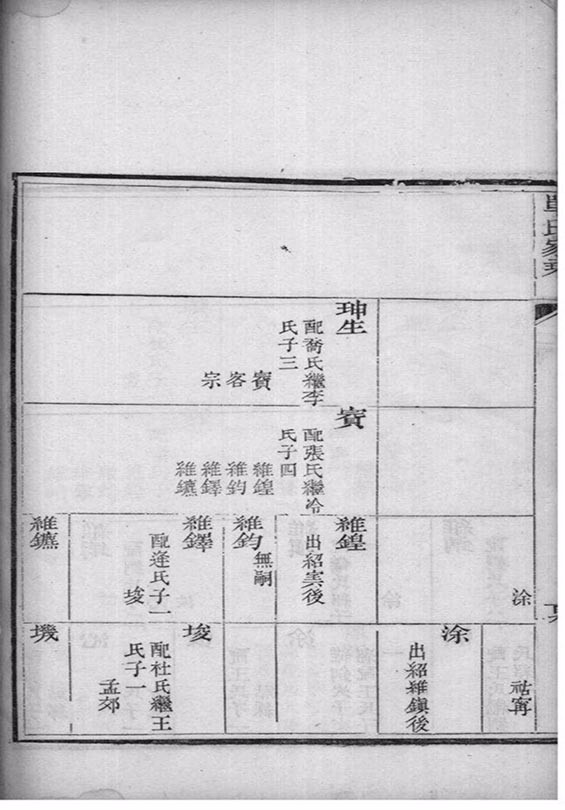 氏家乘
珅生
配喬氏繼李
氏子三
賓
客
宗
賓
配張氏繼冷
氏子四
維鍠
維鈞
維鐸
維鑣
涂
維鍠
出紹後
維鈞
無嗣
維鐸
配逄氏子一
埈
維鑣
祐寗
涂
出紹維鎮後
埈
配杜氏繼王
氏子一
孟郊